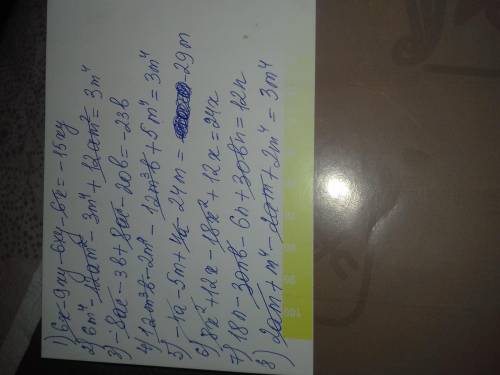 1) 6x-9xy-6xy-6x=-15xy
2) 6m⁴-12am²-3m⁴+12am²=3m⁴
3) -8ac-3b+8ac-20b=-23b
4) 12m³b-2m⁴-12m³b+5m⁴=3m⁴
5) -4a-5m+4a-24m= -29m
6) 18x²+12x-18x²+12x=24x
7) 18n-30nb-6n+30bn=12n
8) 2am+m⁴-2am+2m⁴=3m⁴